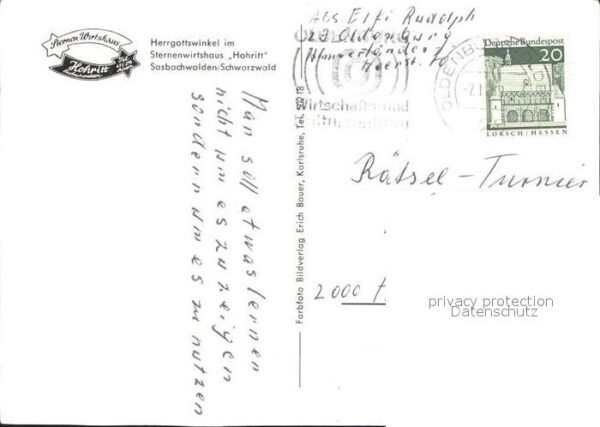 Sternen Wirtshaus
Hohritt
Herrgottswinkel im
Sternenwirtshaus „Hohritt"
Sasbachwalden/Schwarzwald
Man soll etwas lernen
nicht um es zu zeigen
sondern um es zu nutzen
Farbfoto Bildverlag Erich Bauer, Karlsruhe, Tel.
Abs Elfi Rudolph
29 Oldenburg
Wirtschafts-und
OLDENBURG
Deutsche Bundespost
20
LORSCH/HESSEN
Rätsel-Turnier
2000
privacy protection
Datenschutz